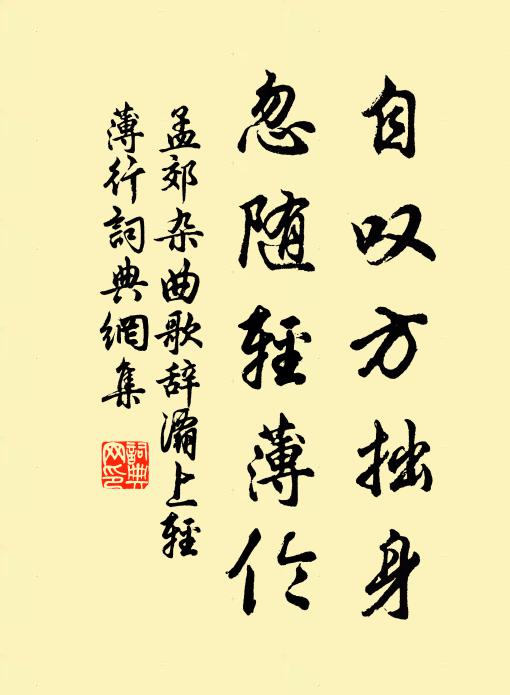 自叹方拙身
忽随輕薄伦
孟郊杂曲歌辞灞上輕
薄行詞典網集
詞典
网印